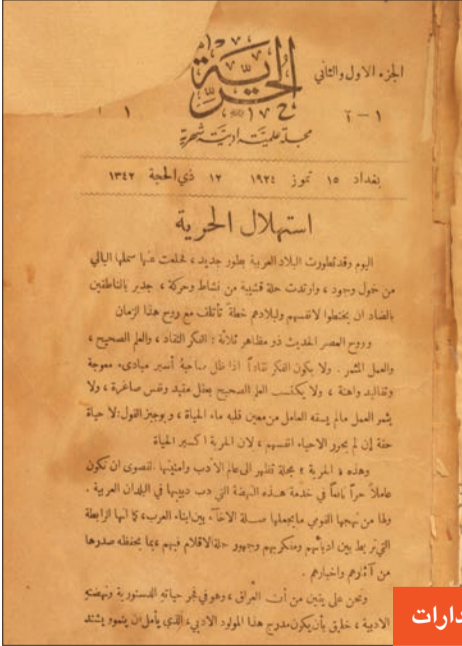 الجزء الاول والثاني
الحرية
١ – ٢
١
مجلة علمية ادبية شهرية
بغداد ١٥ تموز ١٩٢٤ ١٢ ذي الحجة ١٣٤٢
استهلال الحرية
اليوم وقد تطورت البلاد العربية بطور جديد ، فخلعت عنها سملها البالي
من خمول وجمود ، وارتدت حلة قشيبة من نشاط وحركة ، جدير بالناطقين
بالضاد ان يختطوا لانفسهم ولبلادهم خطة تأتلف مع روح هذا الزمان
وروح العصر الحديث ذو مظاهر ثلاثة : الفكر النقاد ، والعلم الصحيح ،
والعمل المثمر . ولا يكون الفكر نقاداً اذا ظل صاحبهُ أسير مبادىء معوجة
وتقاليد واهنة ، ولا يكتسب العلم الصحيح بعقل مقيد ونفس صاغرة ، ولا
يثمر العمل مالم يسقه العامل من معين قلبه ماء الحياة ، وبوجيز القول : لا حياة
حقة إن لم يحرر الاحياء انفسهم ، لان الحرية اكسير الحياة
وهذه « الحرية » مجلة تظهر الى عالم الأدب وامنيتها القصوى ان تكون
عاملاً حراً نافعاً في خدمة هذه النهضة التي دب دبيبها في البلدان العربية .
ولها من نهجها القومي مايجعلها صلة الاخاء بين ابناء العرب ، كما انها الرابطة
التي تربط بين ادبائهم ومفكريهم وجمهور حملة الاقلام فيهم ، بما يحفظه صدرها
من آثارهم واخبارهم .
ونحن على يقين من أن العراق ، وهو في فجر حياته الدستورية ونهضته
الادبية ، خليق بأن يكون مدرج هذا المولود الادبي ، الذي يأمل ان ينمو ويشتد
دارات